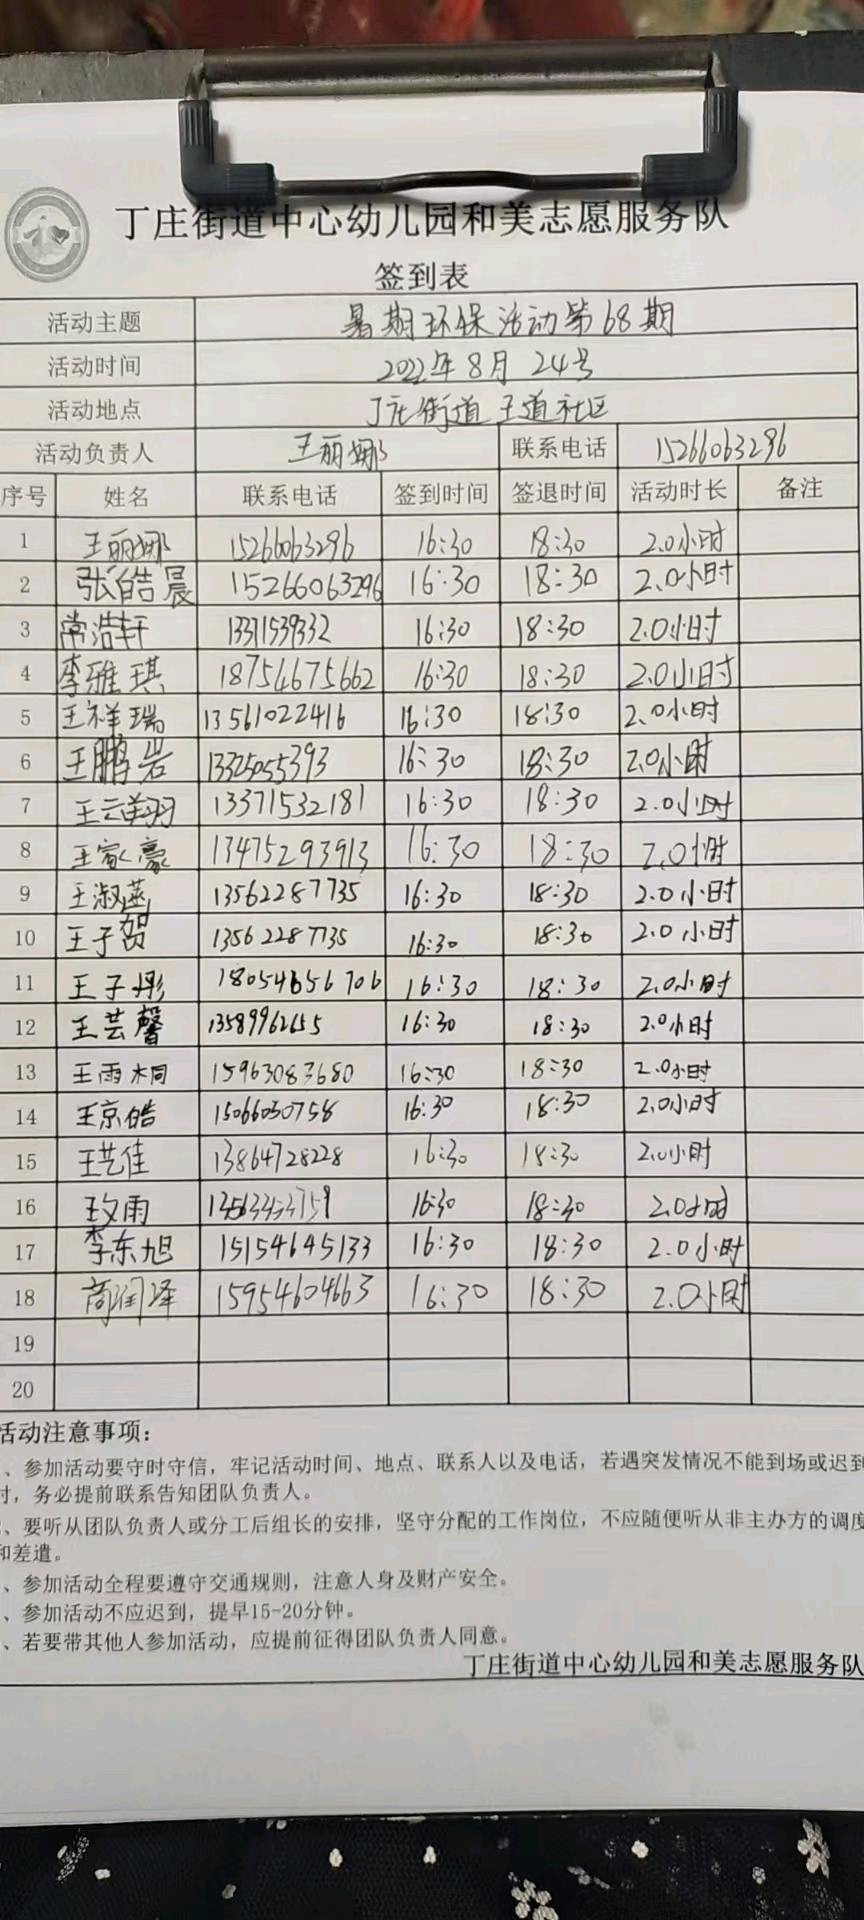 丁庄街道中心幼儿园和美志愿服务队
签到表
活动主题 暑期环保活动第68期
活动时间 2022年8月24号
活动地点 丁庄街道王道社区
活动负责人 王丽娜 联系电话 15266063296
序号 姓名 联系电话 签到时间 签退时间 活动时长 备注
1 王丽娜 15266063296 16:30 18:30 2.0小时
2 张皓晨 15266063296 16:30 18:30 2.0小时
3 常浩轩 13371539332 16:30 18:30 2.0小时
4 李雅琪 18754675662 16:30 18:30 2.0小时
5 王祥瑞 13561022416 16:30 18:30 2.0小时
6 王鹏岩 13325055393 16:30 18:30 2.0小时
7 王云翔 13371532181 16:30 18:30 2.0小时
8 王家豪 13475293913 16:30 18:30 2.0小时
9 王淑 13562287735 16:30 18:30 2.0小时
10 王子贺 13562287735 16:30 18:30 2.0小时
11 王子彤 18054656706 16:30 18:30 2.0小时
12 王芸馨 13589962655 16:30 18:30 2.0小时
13 王雨桐 15963083680 16:30 18:30 2.0小时
14 王京皓 15066030758 16:30 18:30 2.0小时
15 王艺佳 13864728228 16:30 18:30 2.0小时
16 王玟雨 16:30 18:30 2.0小时
17 李东旭 15154645133 16:30 18:30 2.0小时
18 商润泽 15954604663 16:30 18:30 2.0小时
19
20
活动注意事项：
、参加活动要守时守信，牢记活动时间、地点、联系人以及电话，若遇突发情况不能到场或迟到
时，务必提前联系告知团队负责人。
、要听从团队负责人或分工后组长的安排，坚守分配的工作岗位，不应随便听从非主办方的调度
和差遣。
、参加活动全程要遵守交通规则，注意人身及财产安全。
、参加活动不应迟到，提早15-20分钟。
、若要带其他人参加活动，应提前征得团队负责人同意。
丁庄街道中心幼儿园和美志愿服务队